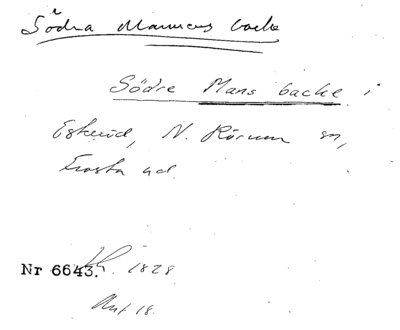 Södra Mannens backe
Södre Mans backe i
Eskeröd, N. Rörum sn,
Frosta hd.
Nr 6643. 1828
Ant. 18.